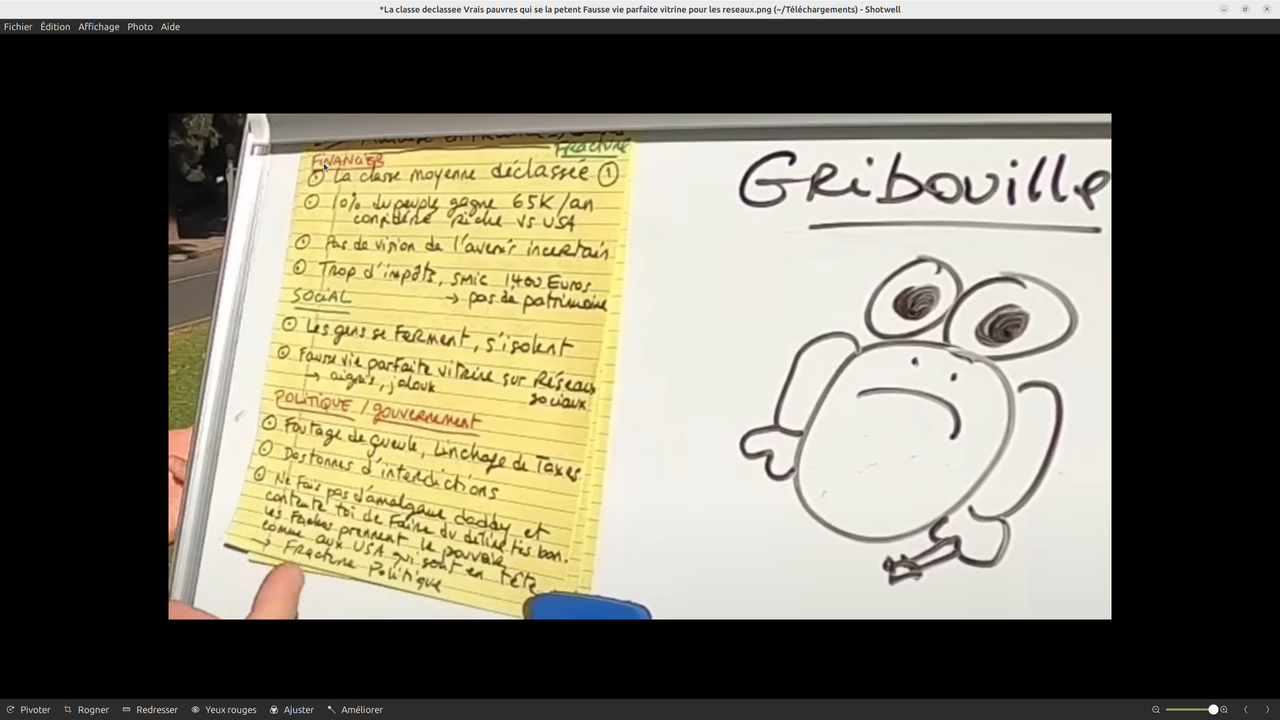 *La classe declassee Vrais pauvres qui se la petent Fausse vie parfaite vitrine pour les reseaux.png (~/Téléchargements) - Shotwell
Fichier Édition Affichage Photo Aide
Fracture
FINANCIER
La classe moyenne déclassée ①
10% du peuple gagne 65K/an
considéré riche vs USA
Pas de vision de l'avenir incertain
Trop d'impôts, smic 1400 Euros
→ pas de patrimoine
SOCIAL
Les gens se Ferment, s'isolent
Fausse vie parfaite vitrine sur Réseaux
sociaux
→ aigris, jaloux
POLITIQUE / gouvernement
Foutage de gueule, Linchage de Taxes
Des tonnes d'interdictions
Ne Fais pas d'amalgame daddy et
contente toi de Faire du
les Fachos prennent le pouvoir
comme aux USA qui sont en Tête
→ Fracture Politique
Gribouille
Pivoter Rogner Redresser Yeux rouges Ajuster Améliorer